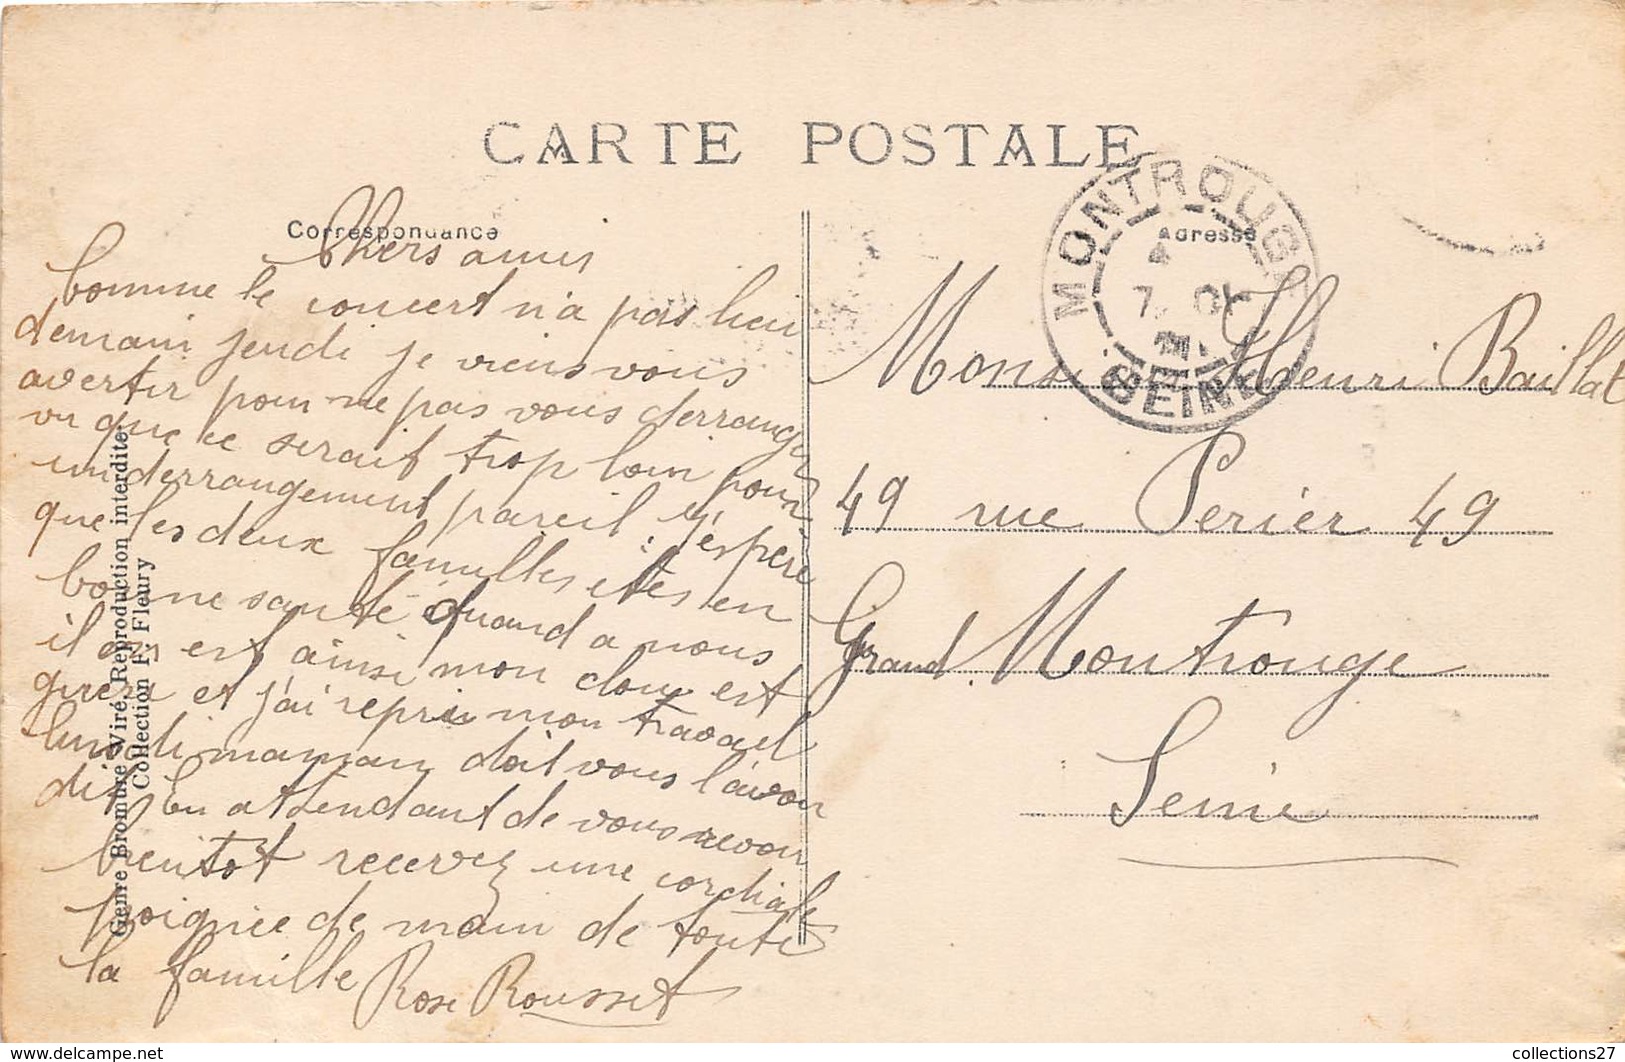 CARTE POSTALE
Correspondance
Adresse
MONTROUGE
SEINE
Chers amis
Comme le concert n'a pas lieu
demain jeudi je viens vous
avertir pour ne pas vous derranger
vu que ce serait trop loin pour
un derrangement pareil. j'espère
que les deux familles êtes en
bonne santé quand a nous
il en est ainsi mon clou est
gueri et j'ai repris mon travail
lundi maman doit vous l'avoir
dit, En attendant de vous revoir
bientot recevez une cordiale
poignée de main de toute
la famille Rose Rousset
Monsieur Henri Baillat
49 rue Perier 49
Grand Montrouge
Seine
Genre Bromure Viré, Reproduction interdite
Collection F. Fleury
collections27